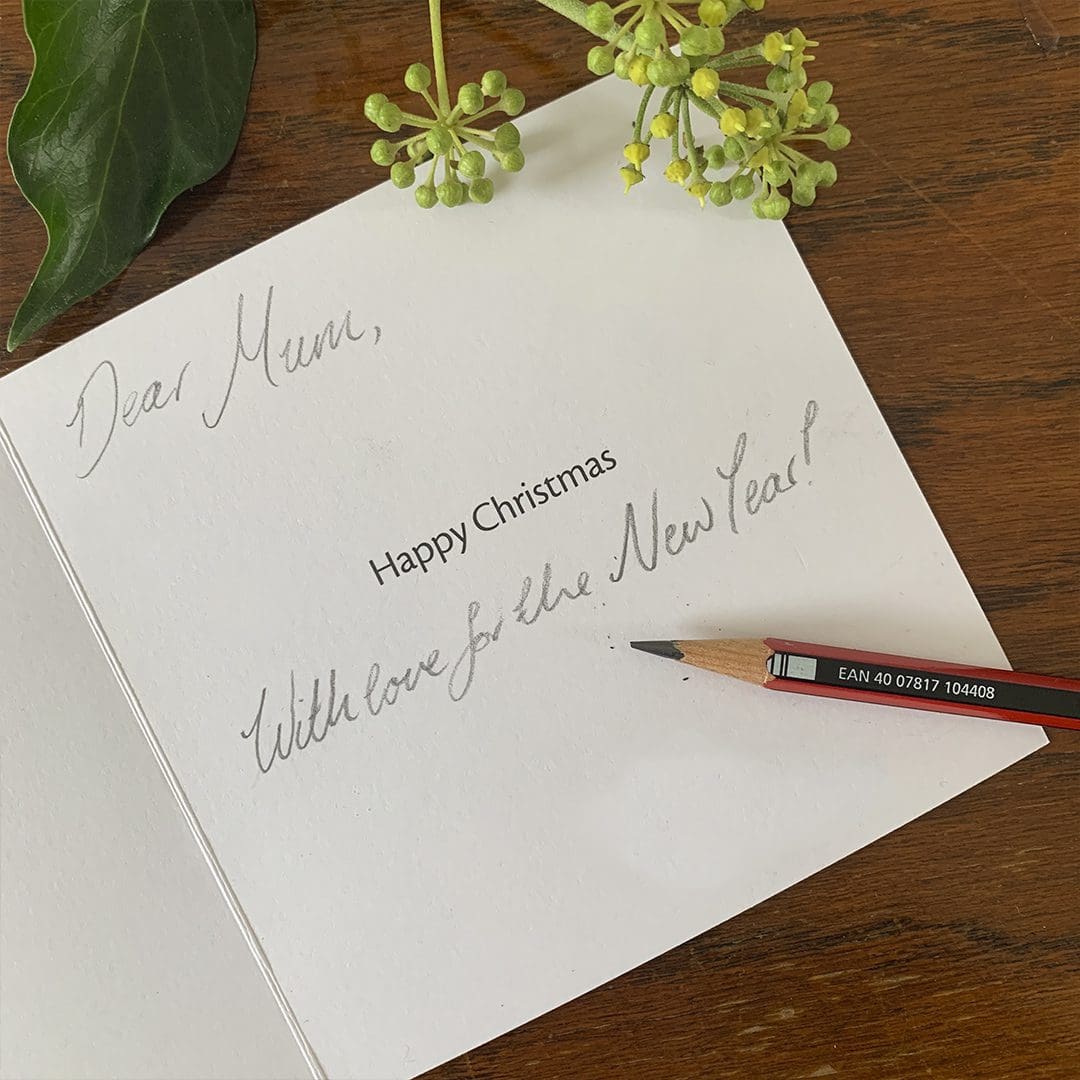 Dear Mum,
Happy Christmas
With love for the New Year!
EAN 40 07817 104408